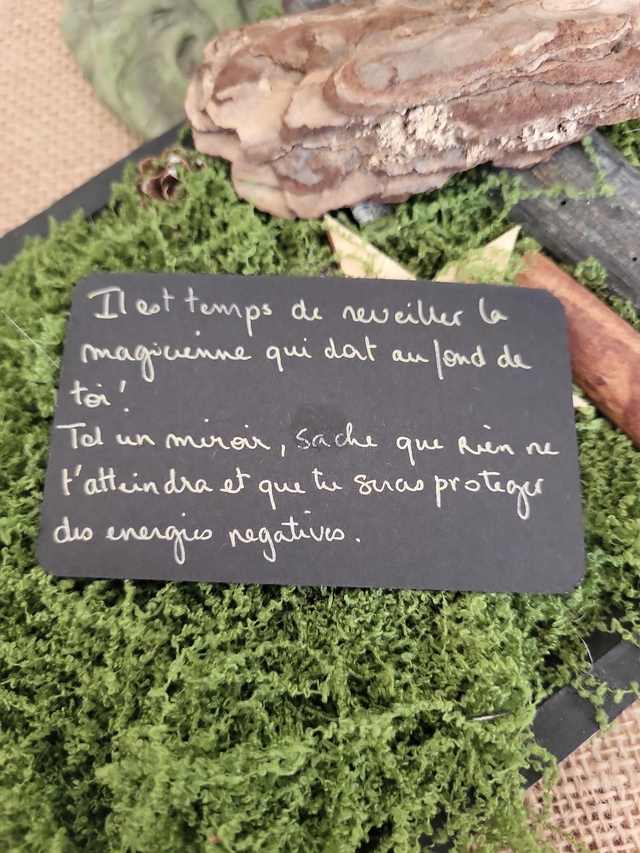 Il est temps de reveiller la
magicienne qui dort au fond de
toi !
Tel un miroir, sache que rien ne
t'atteindra et que tu seras proteger
des energies negatives.